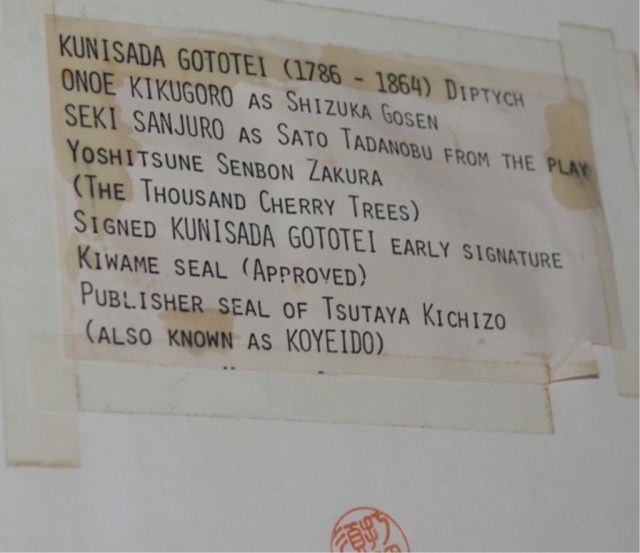 KUNISADA GOTOTEI (1786 - 1864) DIPTYCH
ONOE KIKUGORO AS SHIZUKA GOSEN
SEKI SANJURO AS SATO TADANOBU FROM THE PLAY
YOSHITSUNE SENBON ZAKURA
(THE THOUSAND CHERRY TREES)
SIGNED KUNISADA GOTOTEI EARLY SIGNATURE
KIWAME SEAL (APPROVED)
PUBLISHER SEAL OF TSUTAYA KICHIZO
(ALSO KNOWN AS KOYEIDO)